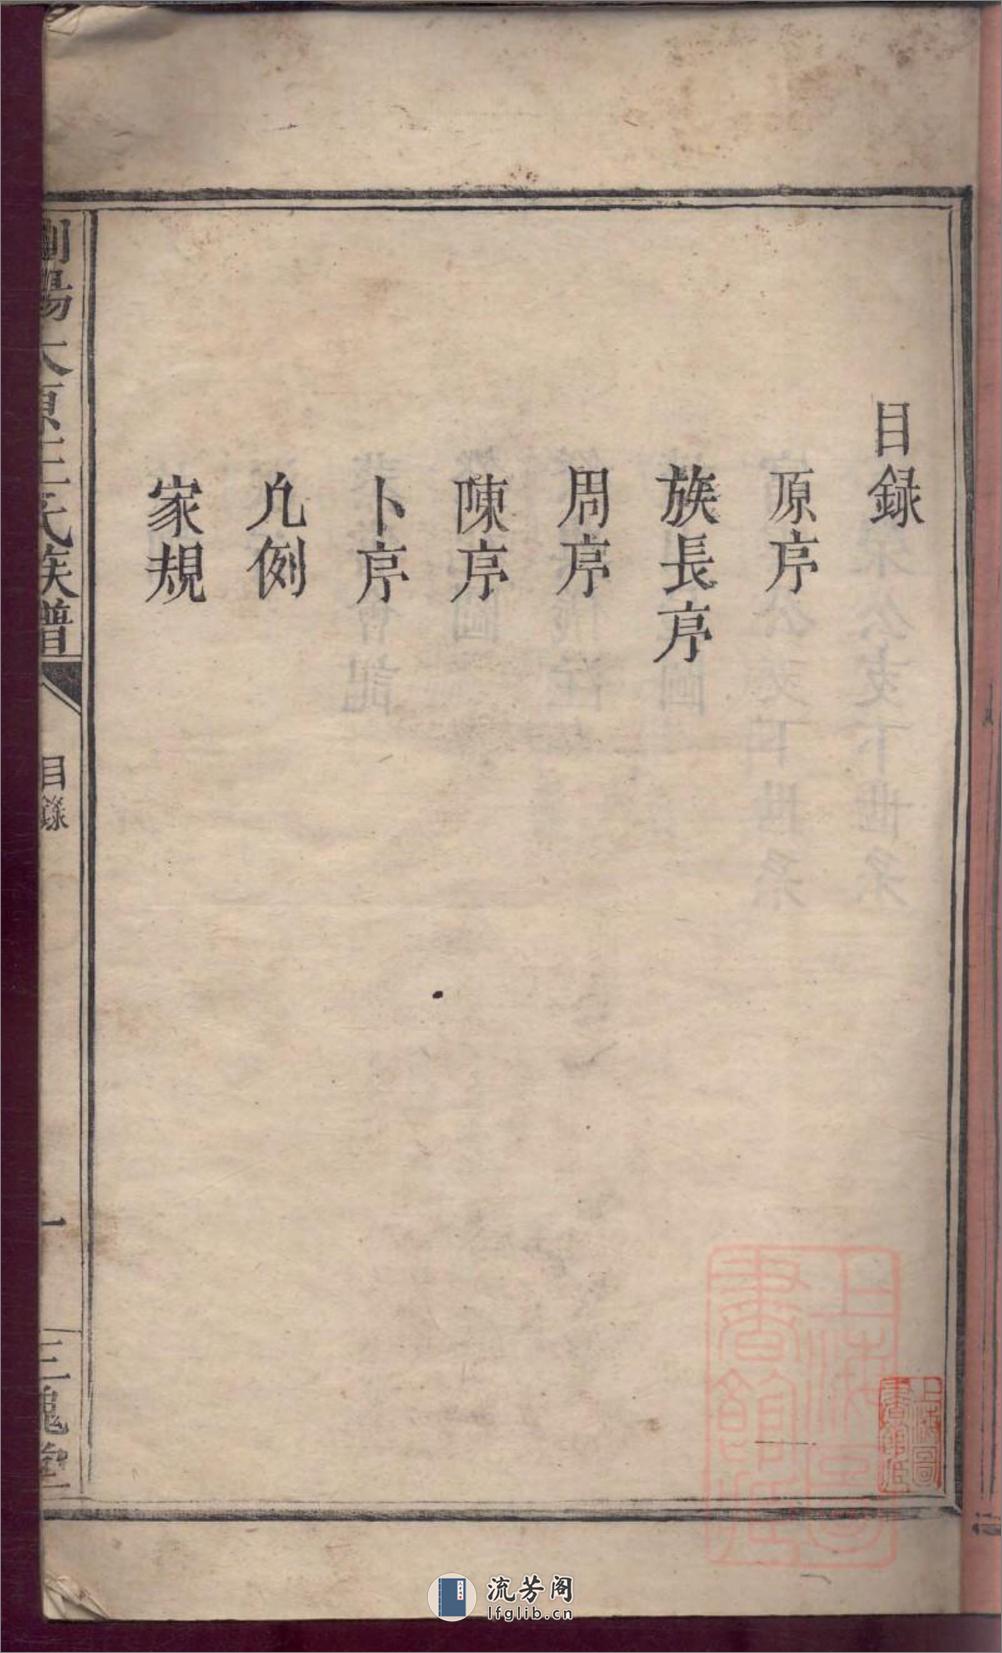 目録
原序
族長序
周序
陳序
卜序
凢例
家規
瀏陽太原王氏族譜
目錄
一
三槐堂
上海圖書館藏
流芳阁
lfglib.cn